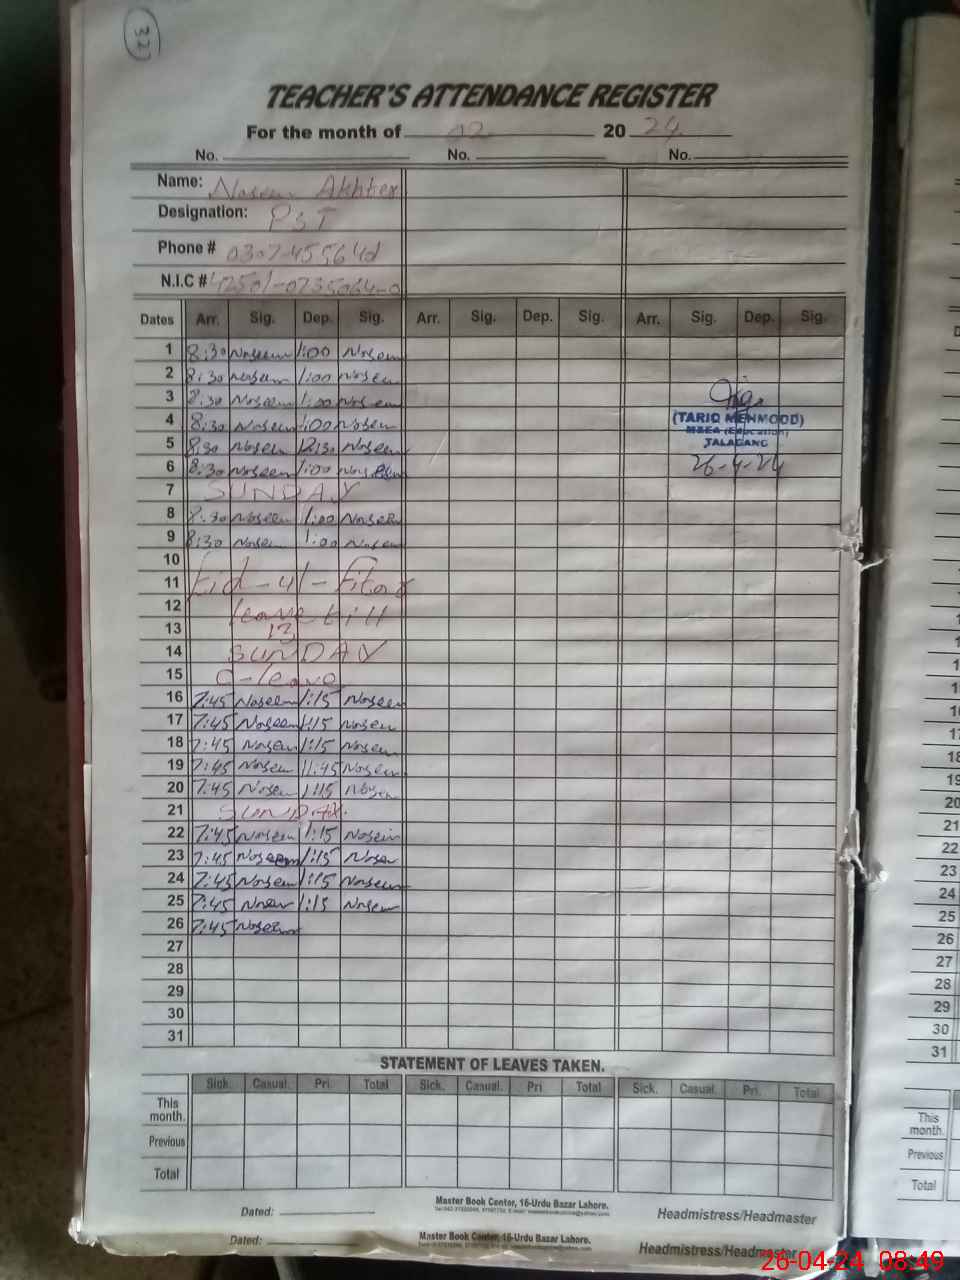 32
TEACHER'S ATTENDANCE REGISTER
For the month of 2024
No. No. No.
Name: Naseem Akhter
Designation: PST
Phone #
N.I.C #
Dates Arr. Sig. Dep. Sig. Arr. Sig. Dep. Sig. Arr. Sig. Dep. Sig.
1 8:30 Naseem 1:00 Nasem
2 8:30 Naseem 1:00 Nasem
3 8:30 Naseem 1:00 Nasem
(TARIQ MEHMOOD)
4 8:30 Naseem 1:00 Nasem
MBEA (Education)
5 8:30 Naseem 12:30 Naseem
TALAGANG
6 8:30 Naseem 1:00 Naseem
26-4-24
7 SUNDAY
8 8:30 Naseem 1:00 Naseem
9 8:30 Nasem 1:00 Nasem
10
11 Eid-ul-Fitar
12 leave till
13 13
14 SUNDAY
15 C-leave
16 7:45 Naseem 1:15 Naseem
17 7:45 Naseem 1:15 Nasem
18 7:45 Nasem 1:15 Nasem
19 7:45 Nasem 11:45 Nasem
20 7:45 Nasem 1:15 Nasem
21 SUNDAY.
22 7:45 Naseem 1:15 Nasem
23 7:45 Naseem 1:15 Nasem
24 7:45 Nasem 1:15 Naseem
25 7:45 Nasem 1:15 Nasem
26 7:45 Naseem
27
28
29
30
31
STATEMENT OF LEAVES TAKEN.
Sick. Casual. Pri. Total Sick. Casual. Pri Total Sick. Casual. Pri. Total
This month.
Previous
Total
Dated: Master Book Center, 16-Urdu Bazar Lahore. Headmistress/Headmaster
Dated: Master Book Center, 16-Urdu Bazar Lahore. Headmistress/Headmaster
17
18
19
20
21
22
23
24
25
26
27
28
29
30
31
This month.
Previous
Total
26-04-24 08:49